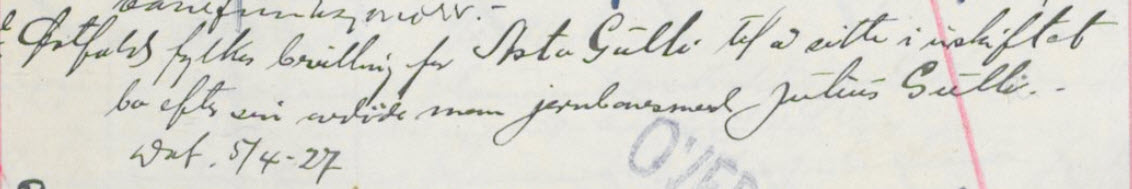 Østfolds fylkes bevilling for Asta Gulli til å sitte i uskiftet
bo efter sin avdøde mann jernbanesmed Julius Gulli.-
Dat. 5/4-27